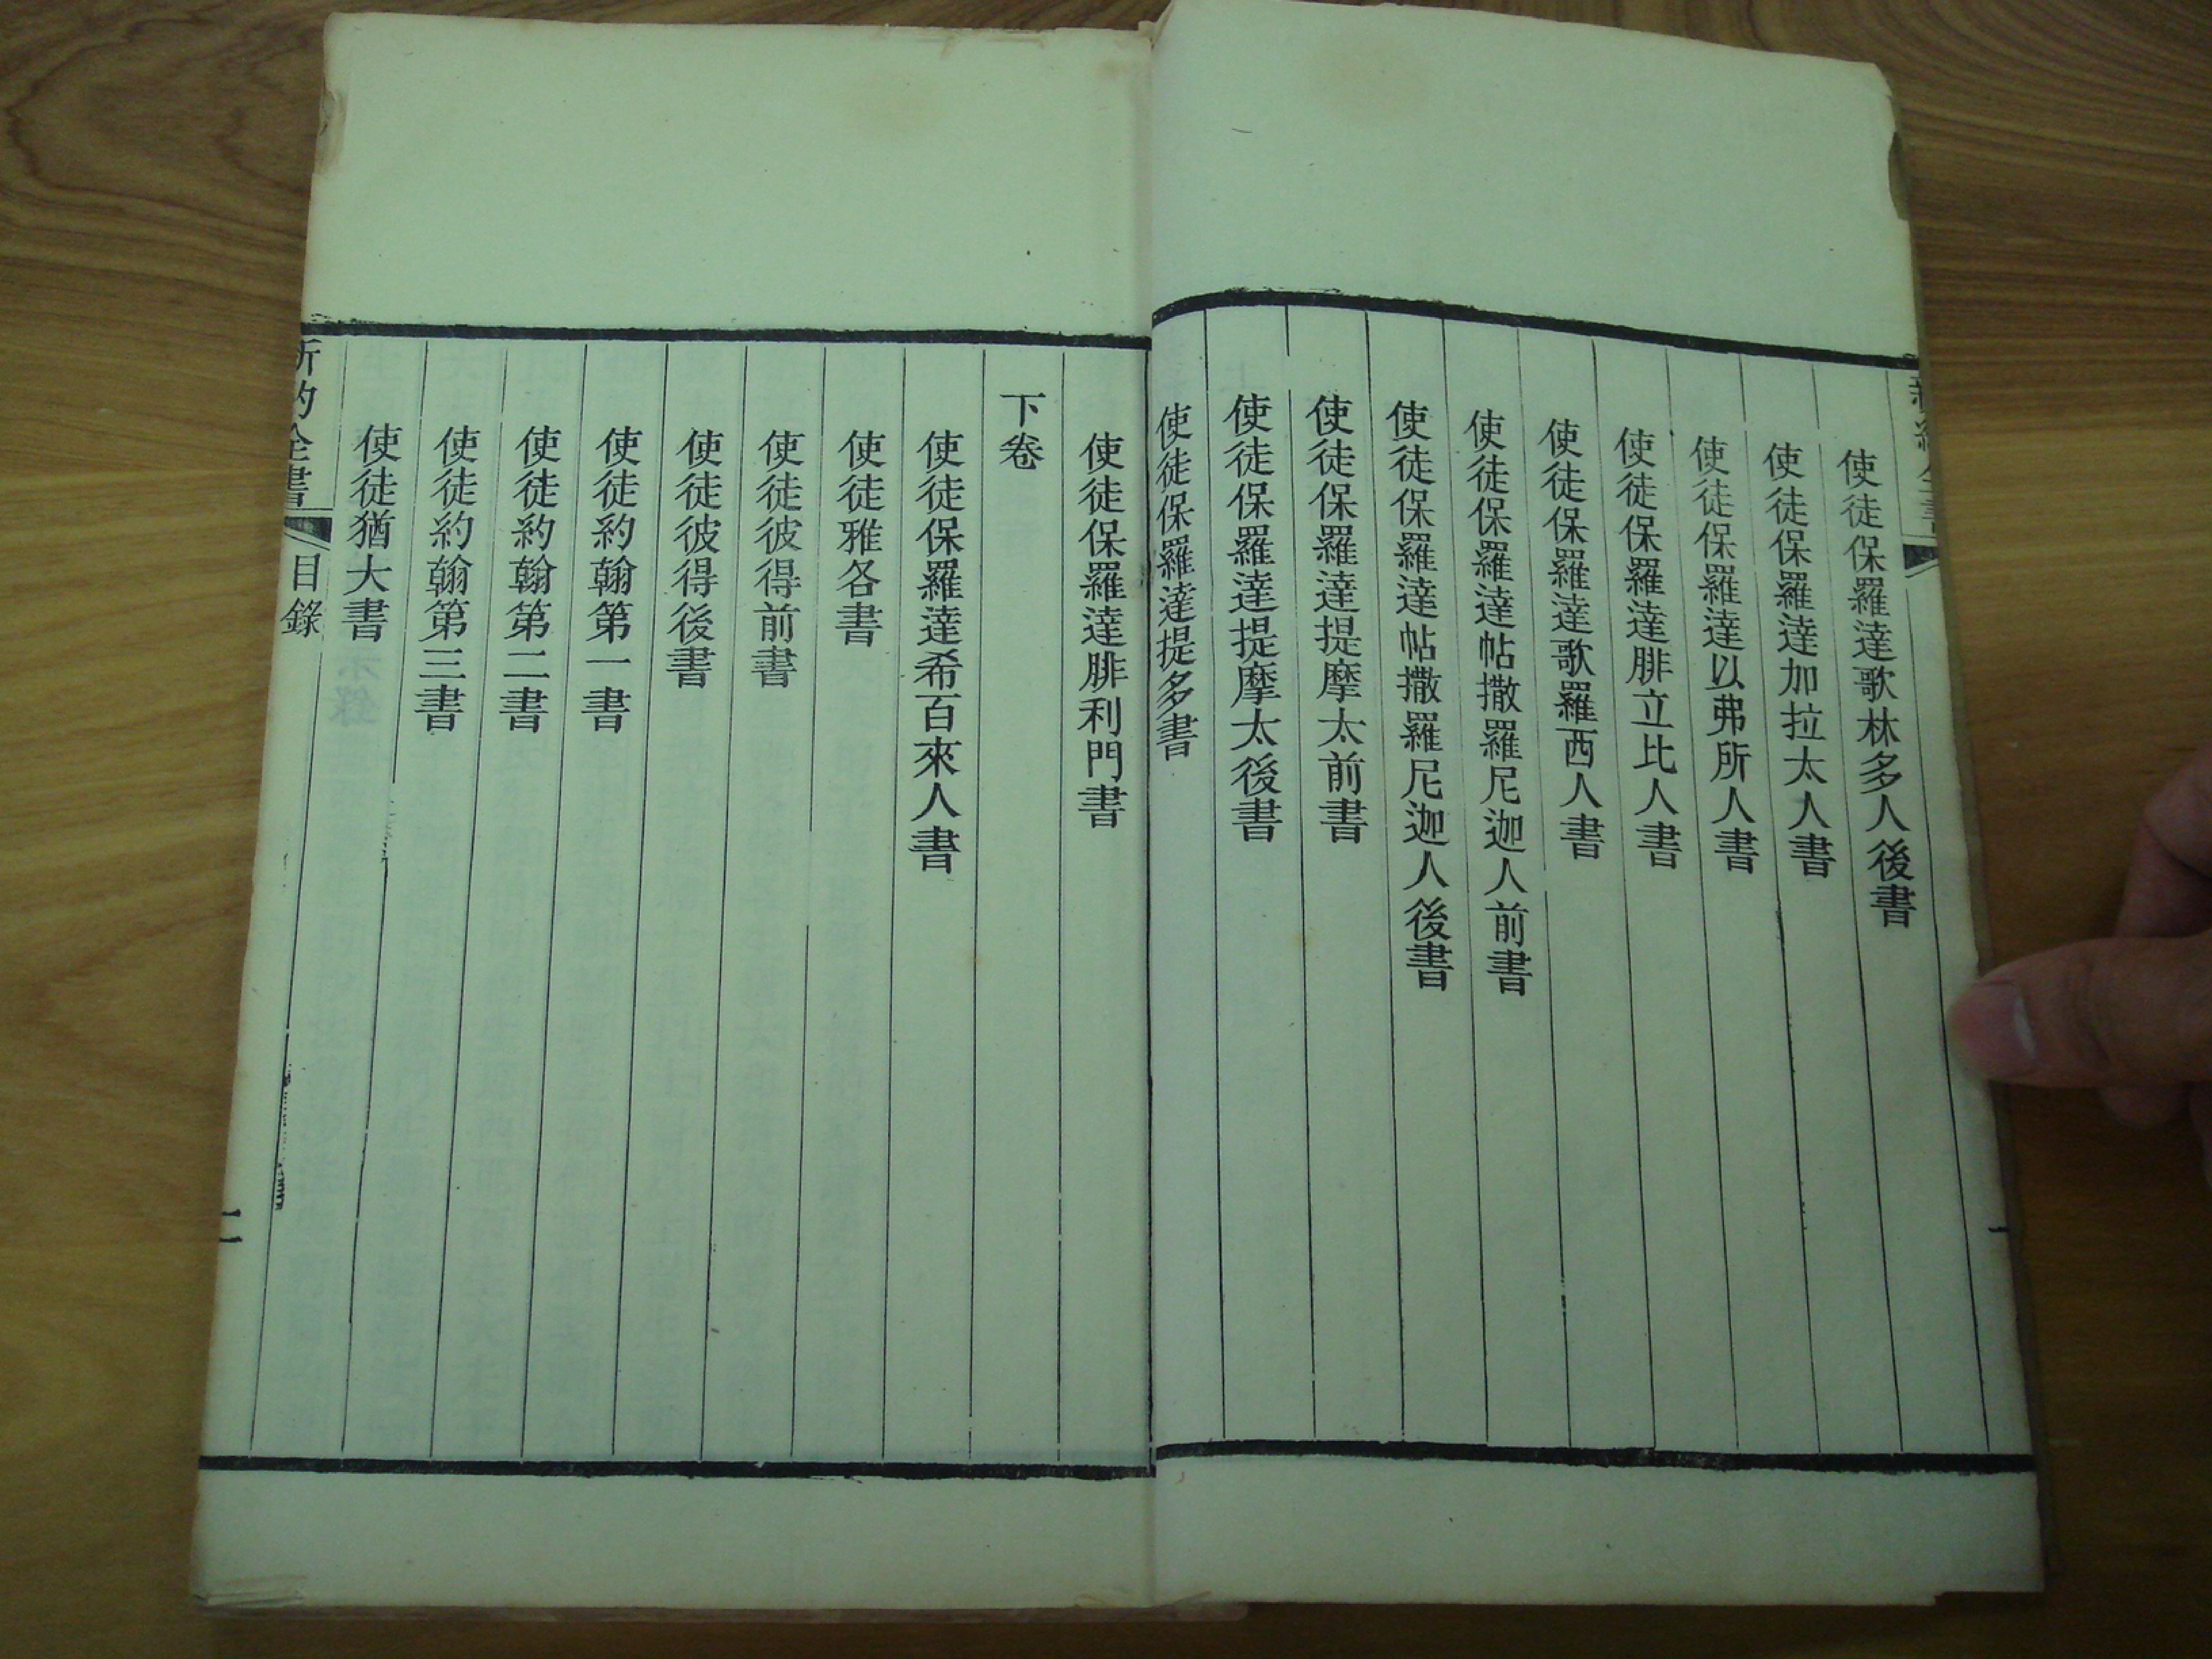 新約全書
一
使徒保羅達歌林多人後書
使徒保羅達加拉太人書
使徒保羅達以弗所人書
使徒保羅達腓立比人書
使徒保羅達歌羅西人書
使徒保羅達帖撒羅尼迦人前書
使徒保羅達帖撒羅尼迦人後書
使徒保羅達提摩太前書
使徒保羅達提摩太後書
使徒保羅達提多書
使徒保羅達腓利門書
下卷
使徒保羅達希百來人書
使徒雅各書
使徒彼得前書
使徒彼得後書
使徒約翰第一書
使徒約翰第二書
使徒約翰第三書
使徒猶大書
新約全書 目錄 二